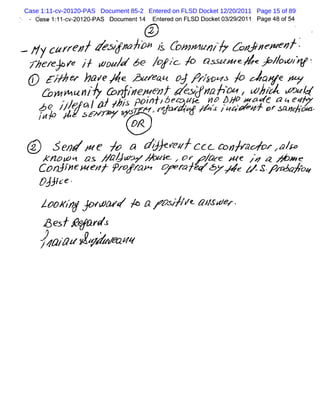 Case 1:11-cv-20120-PAS Document 85-2 Entered on FLSD Docket 12/20/2011 Page 15 of 89
Case 1:11-cv-20120-PAS Document 14 Entered on FLSD Docket 03/29/2011 Page 48 of 54
②
- My current designation is Community Confinement.
Therefore it would be logic to assume the following:
① Either have the Bureau of Prisons to change my
Community Confinement designation, which would
be illegal at this point, because no DHO made a entry
into the SENTRY SYSTEM, regarding this incident or sanction.
OR
② Send me to a different ccc contractor, also
known as Halfway House, or place me in a Home
Confinement Program operated by the U.S. Probation
Office.
Looking forward to a positive answer.
Best Regards